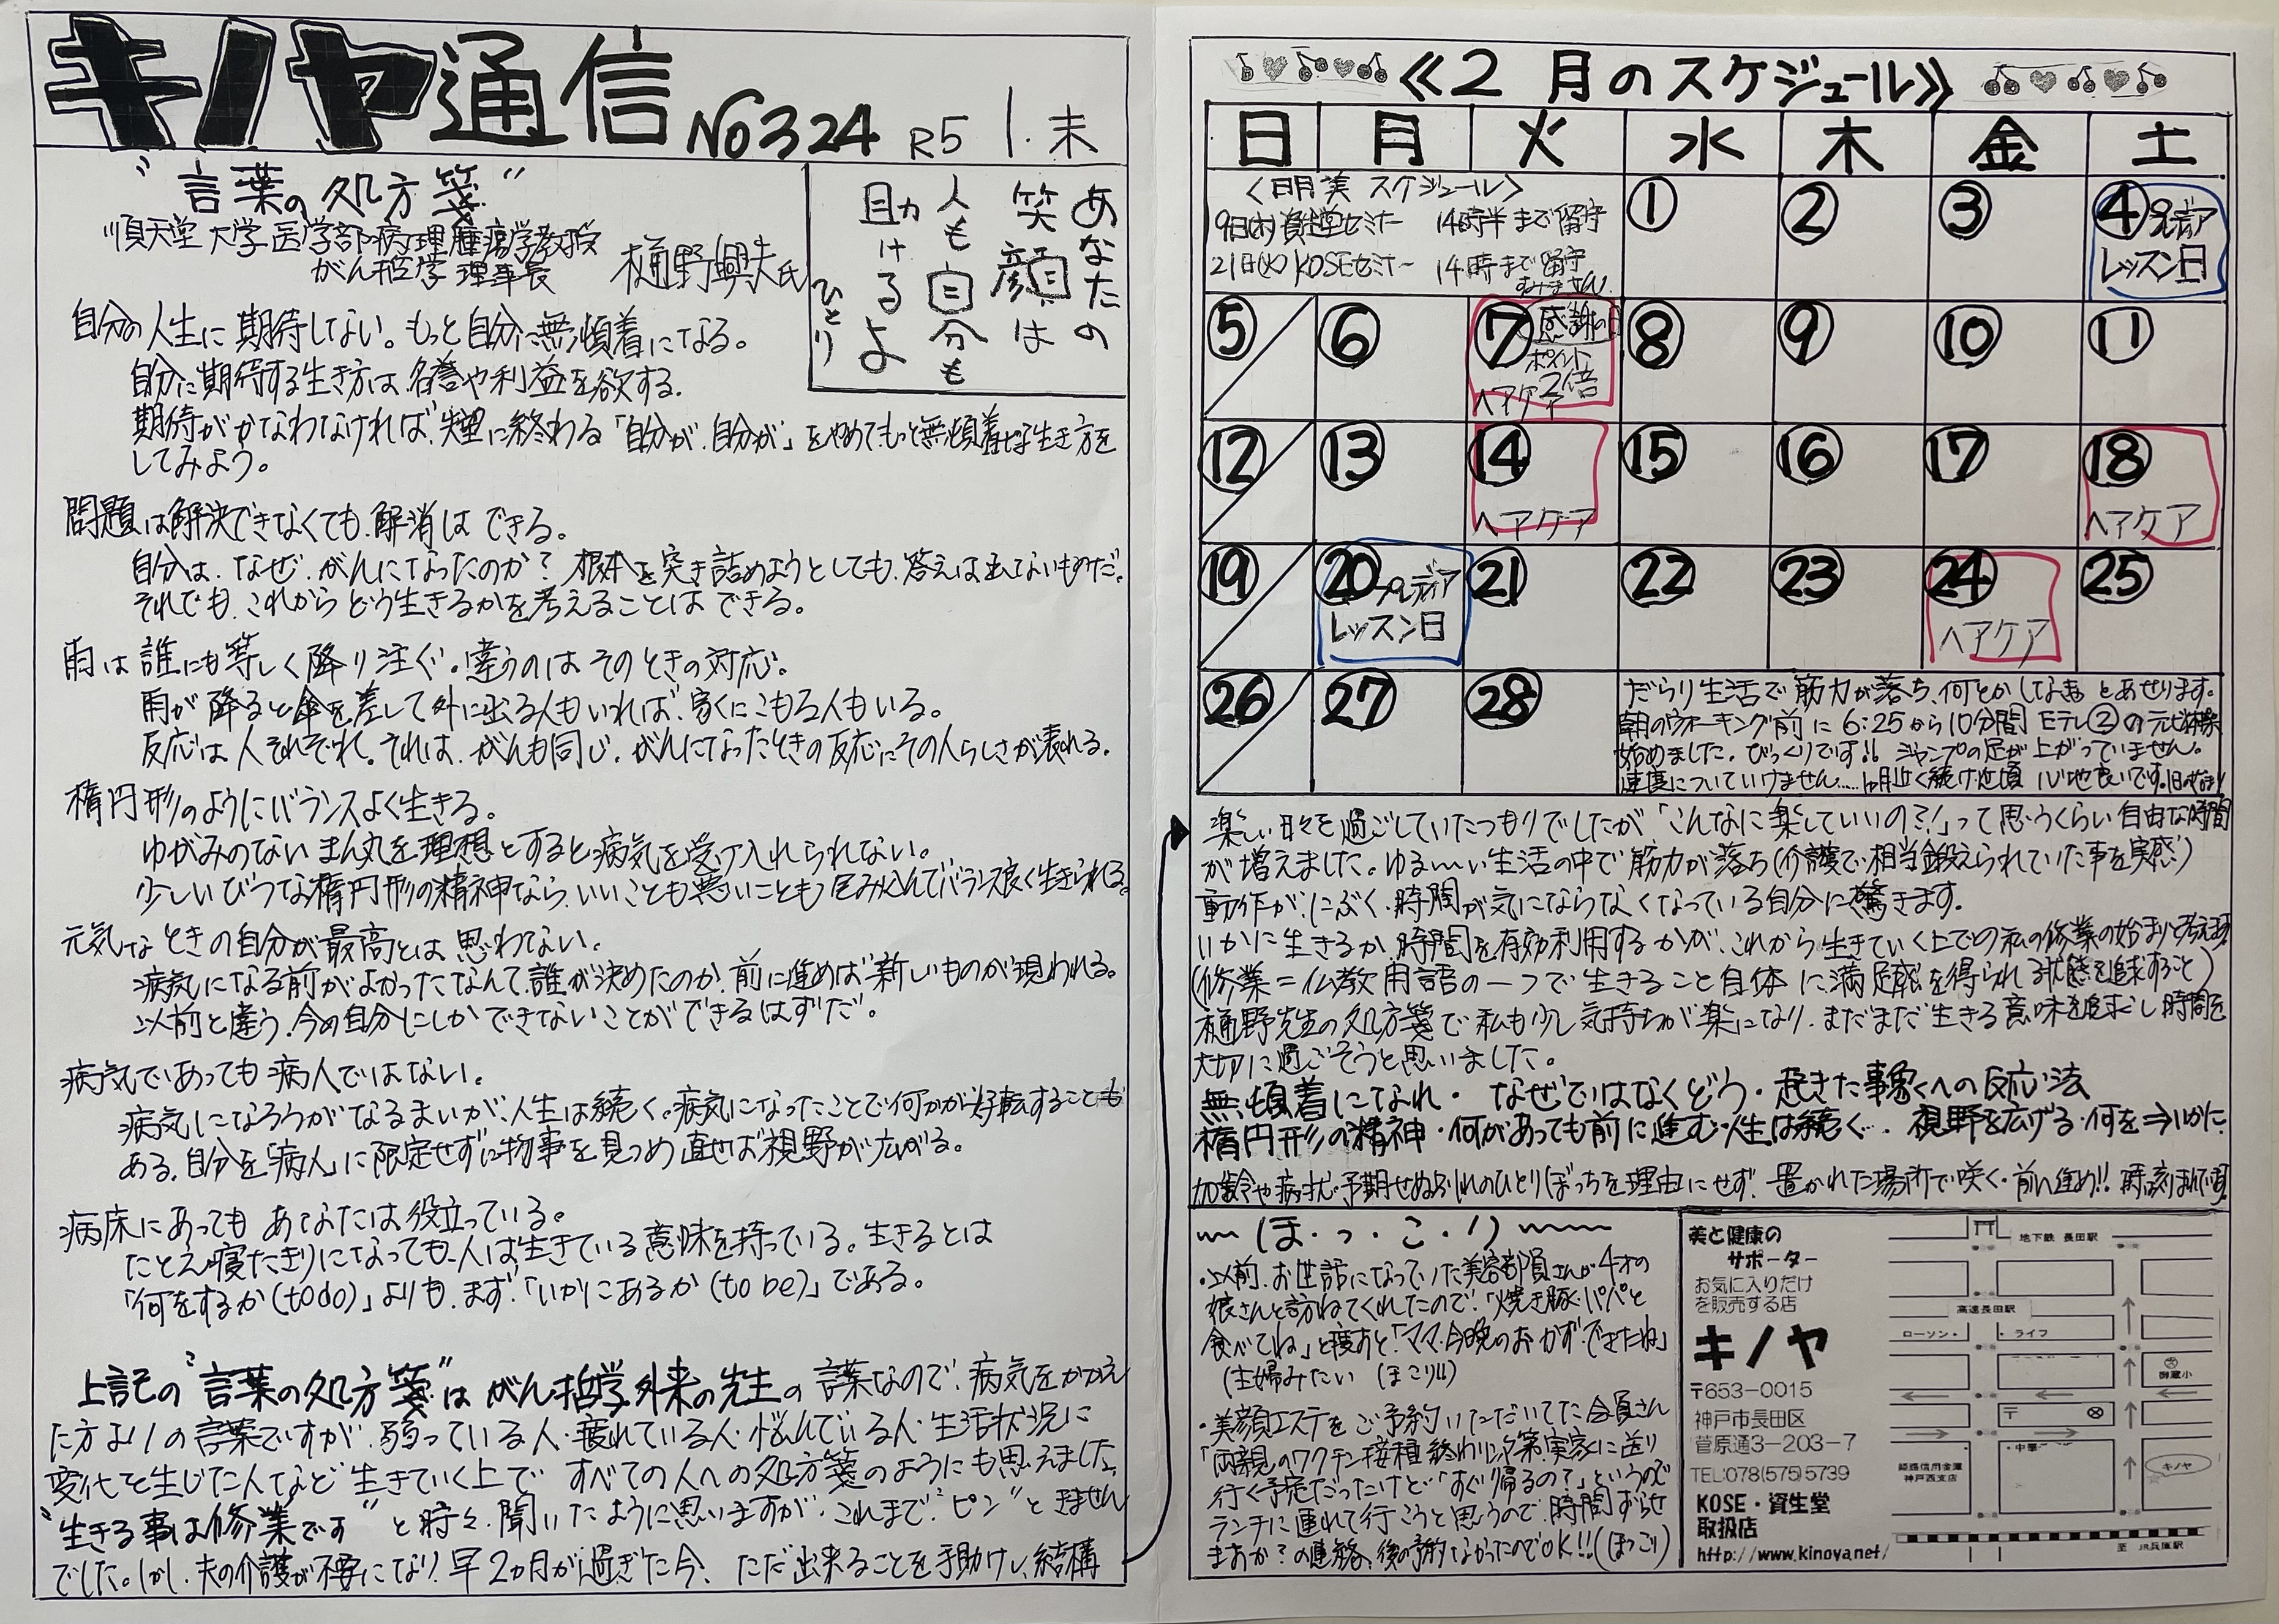 キノヤ通信 No324 R5 1.末
"言葉の処方箋"
順天堂大学医学部病理腫瘍学教授
がん哲学 理事長 樋野興夫氏
あなたの
笑顔は
人も自分も
助けるよ
ひとり
自分の人生に期待しない。もっと自分に無頓着になる。
自分に期待する生き方は、名誉や利益を欲する。
期待がかなわなければ、失望に終わる「自分が、自分が」をやめてもっと無頓着な生き方を
してみよう。
問題は解決できなくても、解消はできる。
自分は、なぜ、がんになったのか？根本を突き詰めようとしても、答えは出ないものだ。
それでも、これからどう生きるかを考えることはできる。
雨は誰にも等しく降り注ぐ。違うのはそのときの対応。
雨が降ると傘を差して外に出る人もいれば、家にこもる人もいる。
反応は人それぞれ。それは、がんも同じ。がんになったときの反応にその人らしさが表れる。
楕円形のようにバランスよく生きる。
ゆがみのないまん丸を理想とすると病気を受け入れられない。
少しいびつな楕円形の精神なら、いいことも悪いことも包み込んでバランス良く生きられる。
元気なときの自分が最高とは思わない。
病気になる前がよかったなんて、誰が決めたのか、前に進めば新しいものが現われる。
以前と違う、今の自分にしかできないことができるはずだ。
病気であっても病人ではない。
病気になろうがなるまいが、人生は続く。病気になったことで何かが好転することも
ある。自分を「病人」に限定せずに物事を見つめ直せば視野が広がる。
病床にあってもあなたは役立っている。
たとえ寝たきりになっても、人は生きている意味を持っている。生きるとは
「何をするか(to do)」よりも、まず「いかにあるか(to be)」である。
上記の"言葉の処方箋"はがん哲学外来の先生の言葉なので、病気をかかえ
た方よりの言葉ですが、弱っている人・疲れている人・悩んでいる人・生活状況に
変化を生じた人など生きていく上で すべての人への処方箋のようにも思えました。
"生きる事は修業です"と時々、聞いたように思いますが、これまで"ピン"ときません
でした。しかし、夫の介護が不要になり、早2カ月が過ぎた今、ただ出来ることを手助けし、結構
《2月のスケジュール》
日 月 火 水 木 金 土
〈明美 スケジュール〉
9日(木)資生堂セミナー 14時半まで留守
21日(火)KOSEセミナー 14時まで留守
すみません。
① ② ③ ④ プレディア
レッスン日
⑤ ⑥ ⑦ 感謝の日 ポイント2倍 ヘアケア ⑧ ⑨ ⑩ ⑪
⑫ ⑬ ⑭ ヘアケア ⑮ ⑯ ⑰ ⑱ ヘアケア
⑲ ⑳ プレディア レッスン日 ㉑ ㉒ ㉓ ㉔ ヘアケア ㉕
㉖ ㉗ ㉘
だらり生活で筋力が落ち、何とかしなきゃとあせります。
朝のウオーキング前に6:25から10分間 Eテレ②の体操
始めました。びっくりです!! ジャンプの足が上がっていません。
速度についていけません……1ヶ月近く続け近頃 心地良いです。
楽しい日々を過ごしていたつもりでしたが「こんなに楽していいの?!」って思うくらい自由な時間
が増えました。ゆる〜い生活の中で筋力が落ち(介護で相当鍛えられていた事を実感)
動作が、にぶく、時間が気にならなくなっている自分に驚きます。
いかに生きるか、時間を有効利用するかが、これから生きていく上での私の修業の始まりと考えます。
(修業=仏教用語の一つで生きること自体に満足感を得られる状態を追求すること)
樋野先生の処方箋で私も少し気持ちが楽になり、まだまだ生きる意味を追求し時間を
大切に過ごそうと思いました。
無頓着になれ・なぜではなくどう・起きた事象への反応法
楕円形の精神・何があっても前に進む・人生は続く・視野を広げる・何を⇒いかに
加齢や病状・予期せぬ別れのひとりぼっちを理由にせず、置かれた場所で咲く・前に進め!!
〜ほ・っ・こ・り〜
・以前、お世話になっていた美容部員さんが4才の
娘さんと訪ねてくれたので、「焼き豚、パパと
食べてね」と渡すと「ママ、今晩のおかず、できたね」
(主婦みたい (ほこり!!)
・美顔エステをご予約いただいてた会員さん
「両親のワクチン接種終わり次第、実家に送り
行く予定だったけど「すぐり帰るの？」というので
ランチに連れて行こうと思うので、時間ずらせ
ますか？の連絡、後の予約なかったのでOK!!(ほっこり)
美と健康の
サポーター
お気に入りだけ
を販売する店
キノヤ
〒653-0015
神戸市長田区
菅原通3-203-7
TEL:078(575)5739
KOSE・資生堂
取扱店
http://www.kinoya.net/
地下鉄 長田駅
高速長田駅
ローソン・ ・ライフ
御蔵小
〒
・中華
姫路信用金庫
神戸西支店
キノヤ
至 JR兵庫駅